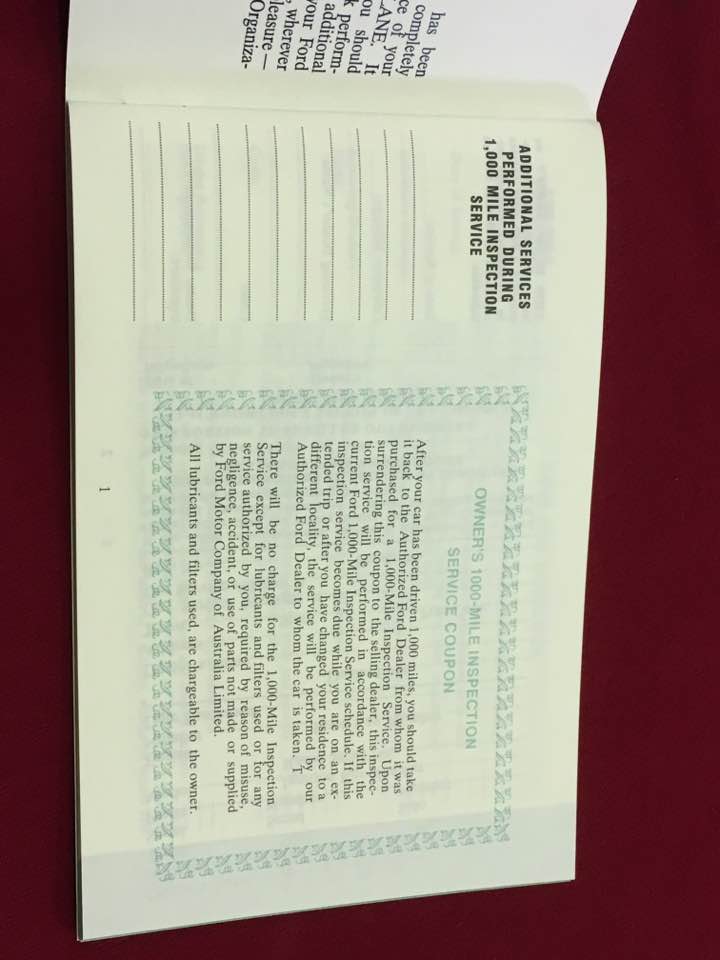 has been
completely
ce of your
LANE. It
ou should
k perform-
additional
your Ford
, wherever
leasure —
Organiza-
ADDITIONAL SERVICES
PERFORMED DURING
1,000 MILE INSPECTION
SERVICE
OWNER'S 1000-MILE INSPECTION
SERVICE COUPON
After your car has been driven 1,000 miles, you should take
it back to the Authorized Ford Dealer from whom it was
purchased for a 1,000-Mile Inspection Service. Upon
surrendering this coupon to the selling dealer, this inspec-
tion service will be performed in accordance with the
current Ford 1,000-Mile Inspection Service schedule. If this
inspection service becomes due while you are on an ex-
tended trip or after you have changed your residence to a
different locality, the service will be performed by our
Authorized Ford Dealer to whom the car is taken. T
There will be no charge for the 1,000-Mile Inspection
Service except for lubricants and filters used or for any
service authorized by you, required by reason of misuse,
negligence, accident, or use of parts not made or supplied
by Ford Motor Company of Australia Limited.
All lubricants and filters used, are chargeable to the owner.
1